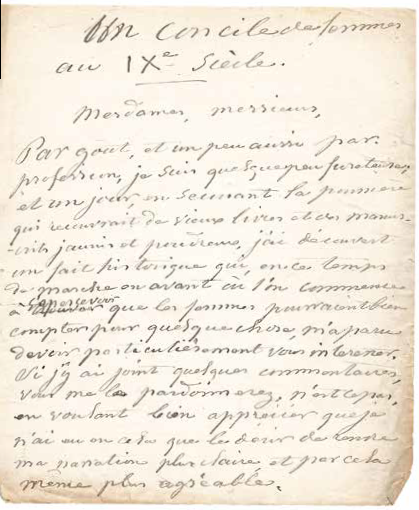 Un concile de femmes
au IXe Siècle.
Mesdames, messieurs,
Par goût, et un peu aussi par
profession, je suis quelque peu fureteur,
et un jour, en secouant la poussière
qui recouvrait de vieux livres et des manus-
-crits jaunis et poudreux, j'ai découvert
un fait historique qui, en ce temps
de marche en avant où l'on commence
à s'apercevoir que les femmes pourraient bien
compter pour quelque chose, m'a paru
devoir particulièrement vous intéresser.
Si j'y ai joint quelques commentaires,
vous me le pardonnerez, n'est ce pas,
en voulant bien apprécier que je
n'ai eu en cela que le désir de rendre
ma narration plus claire, et par cela
même plus agréable.